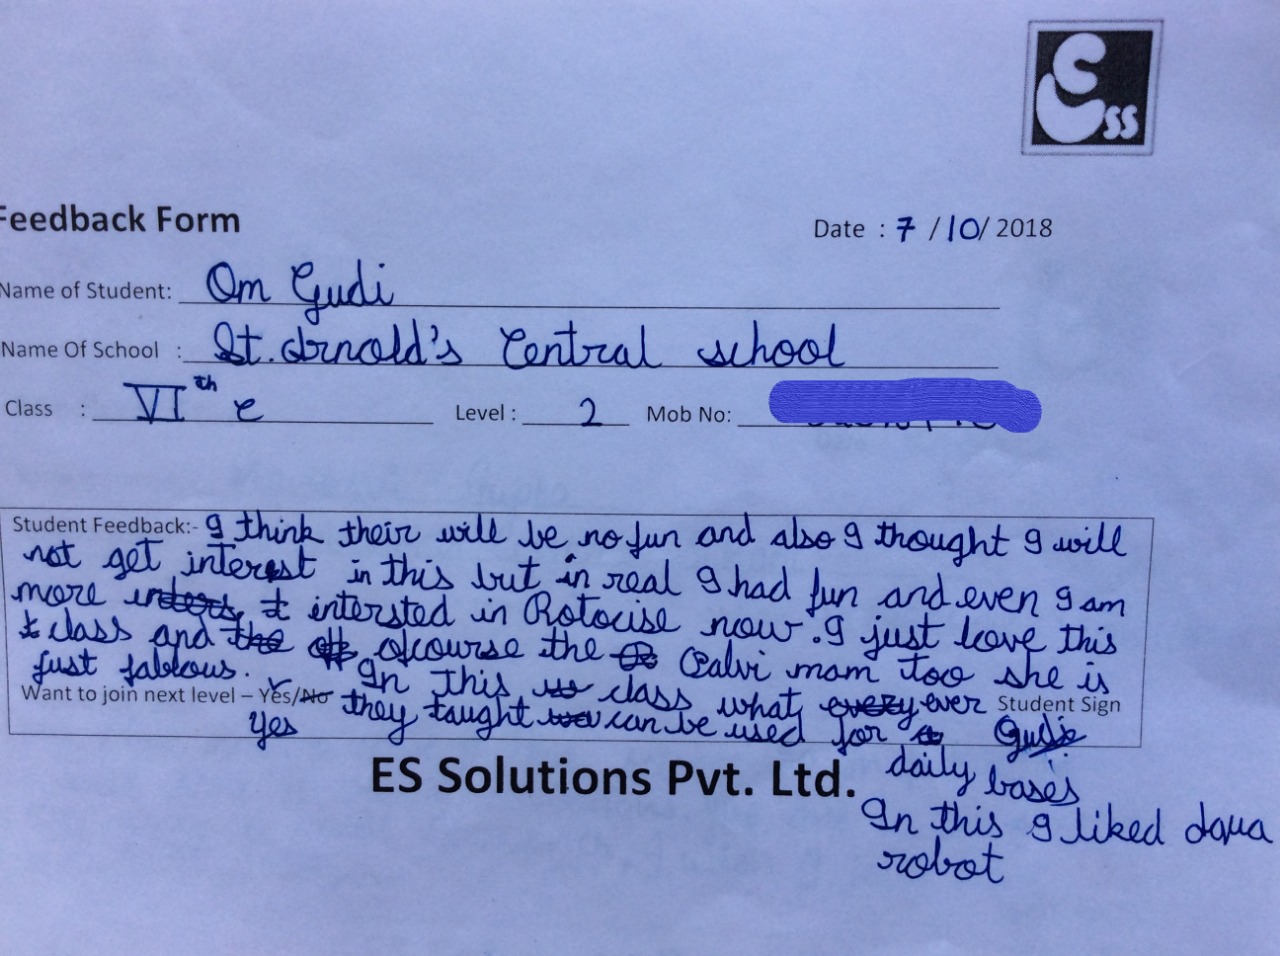 Ess
Feedback Form
Date : 7 /10/ 2018
Name of Student: Om Gudi
Name Of School : St. Arnold's Central school
Class : VIth e Level : 2 Mob No:
Student Feedback:- I think their will be no fun and also I thought I will
not get interest in this but in real I had fun and even I am
more intersted in Rotocise now. I just love this
class and ofcourse the Palvi mam too she is
just fablous. In this class what ever
Want to join next level – Yes/No they taught can be used for Student Sign
yes Gudi
daily bases
ES Solutions Pvt. Ltd.
In this I liked
robot